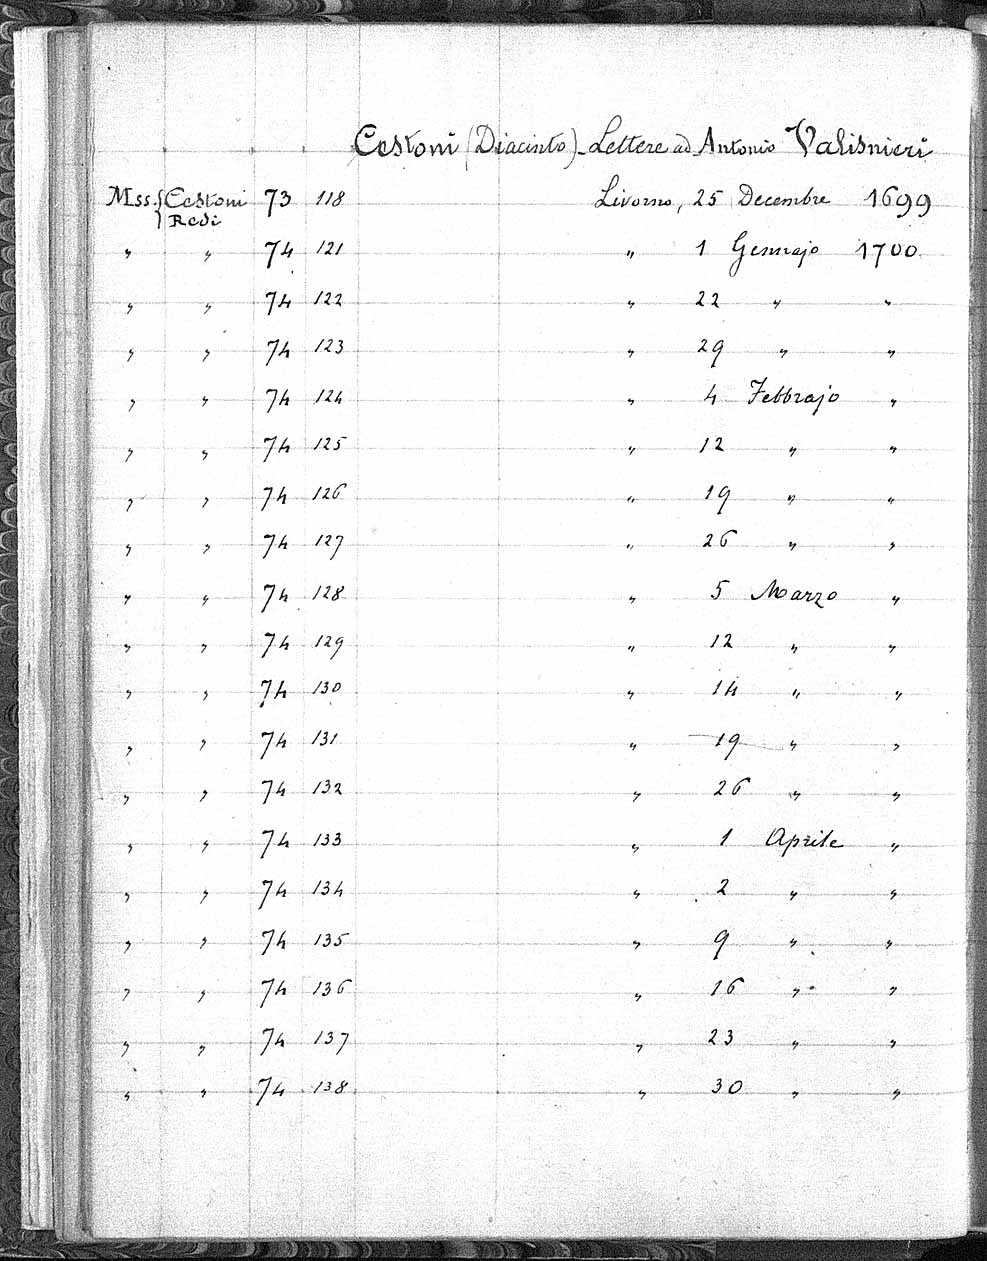 Cestoni (Diacinto) - Lettere ad Antonio Valisnieri
Mss. { Cestoni 73 118 Livorno, 25 Decembre 1699
} Redi
" " 74 121 " 1 Gennajo 1700
" " 74 122 " 22 " "
" " 74 123 " 29 " "
" " 74 124 " 4 Febbrajo "
" " 74 125 " 12 " "
" " 74 126 " 19 " "
" " 74 127 " 26 " "
" " 74 128 " 5 Marzo "
" " 74 129 " 12 " "
" " 74 130 " 14 " "
" " 74 131 " 19 " "
" " 74 132 " 26 " "
" " 74 133 " 1 Aprile "
" " 74 134 " 2 " "
" " 74 135 " 9 " "
" " 74 136 " 16 " "
" " 74 137 " 23 " "
" " 74 138 " 30 " "